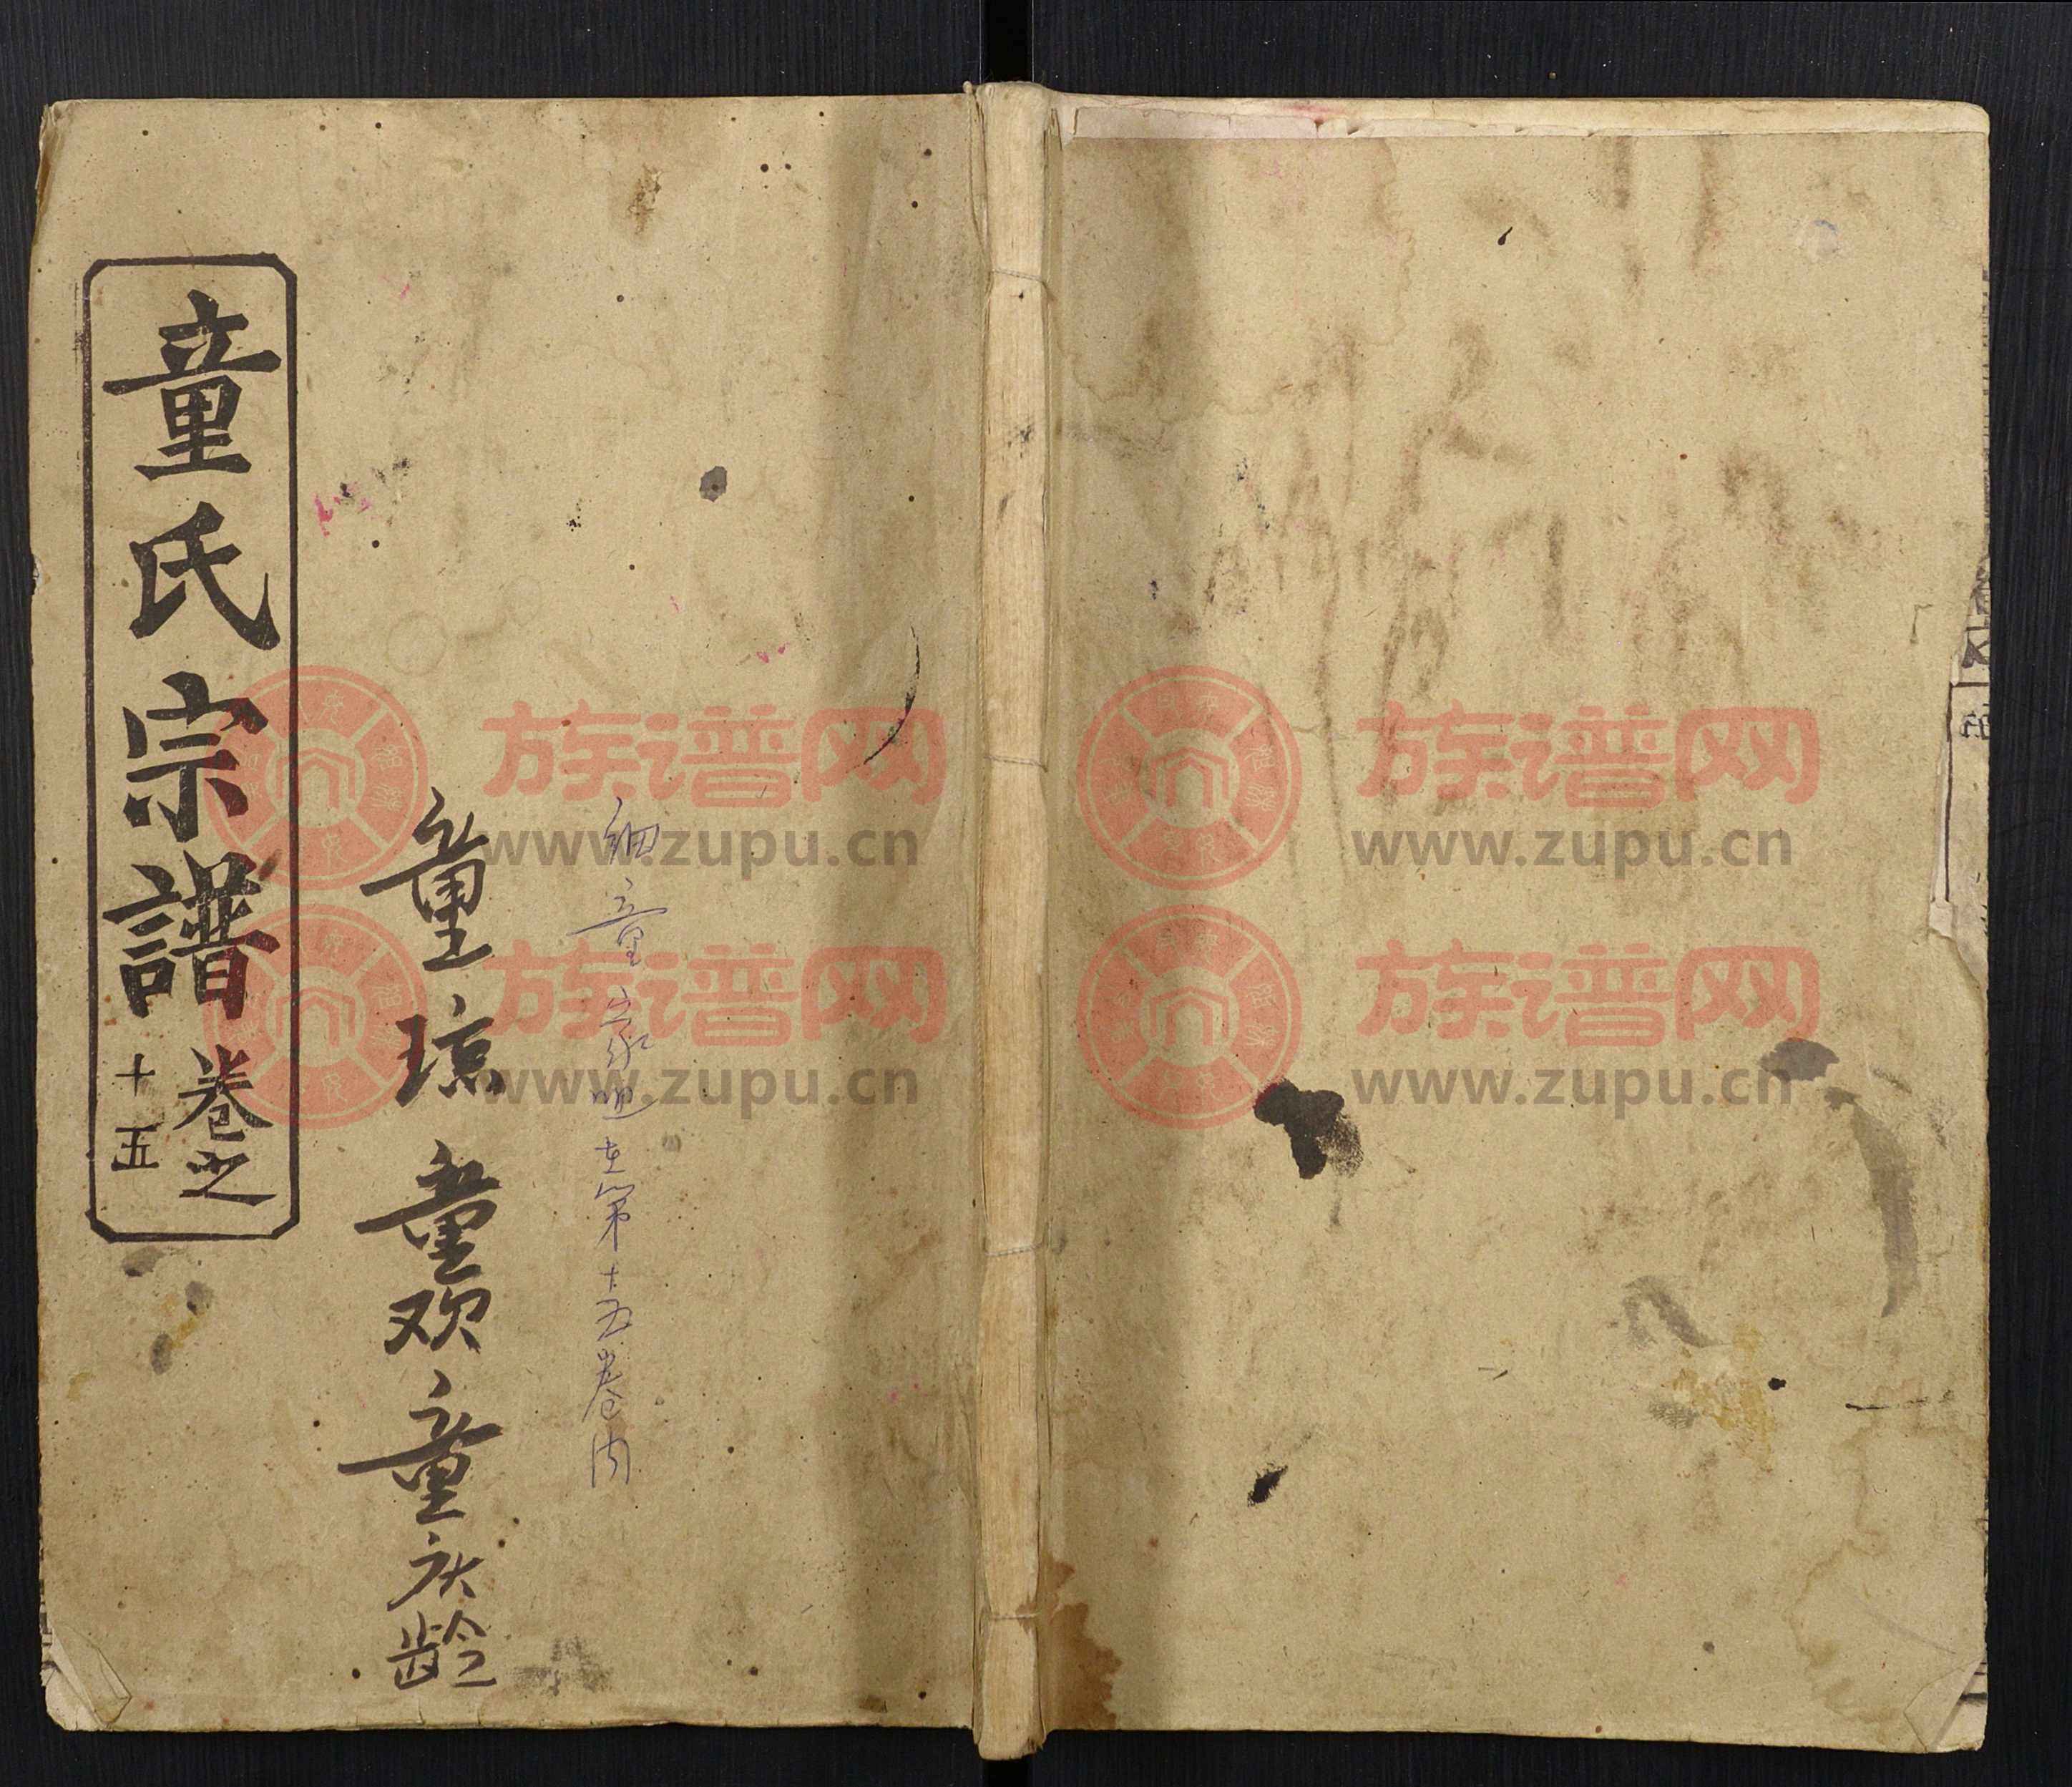 童氏宗譜 卷之
十五
童琼 童欢 童庆龄
细童家咀在第十五卷内
族谱网
www.zupu.cn
族谱网
www.zupu.cn
族谱网
www.zupu.cn
族谱网
www.zupu.cn